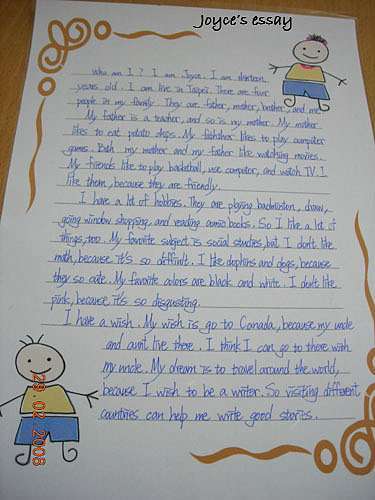 Joyce's essay
who am I ? I am Joyce. I am thirteen
years old. I am live in Taipei. There are four
people in my family. They are father, mother, brother, and me.
My father is a teacher, and so is my mother. My mother
likes to eat potato chips. My father likes to play computer
games. Both my mother and my father like watching movies.
My friends like to play basketball, use computer, and watch TV. I
like them, because they are friendly.
I have a lot of hobbies. They are playing badminton, draw,
going window shopping, and reading comic books. So I like a lot of
things, too. My favorite subject is social studies, but I don't like
math, because it's so difficult. I like dophins and dogs, because
they so cute. My favorite colors are black and white. I don't like
pink, because it's so disgusting.
I have a wish. My wish is go to Canada, because my uncle
and aunt live there. I think I can go to there with
my uncle. My dream is to travel around the world,
because I wish to be a writer. So visiting different
countries can help me write good stories.
29.02.2008